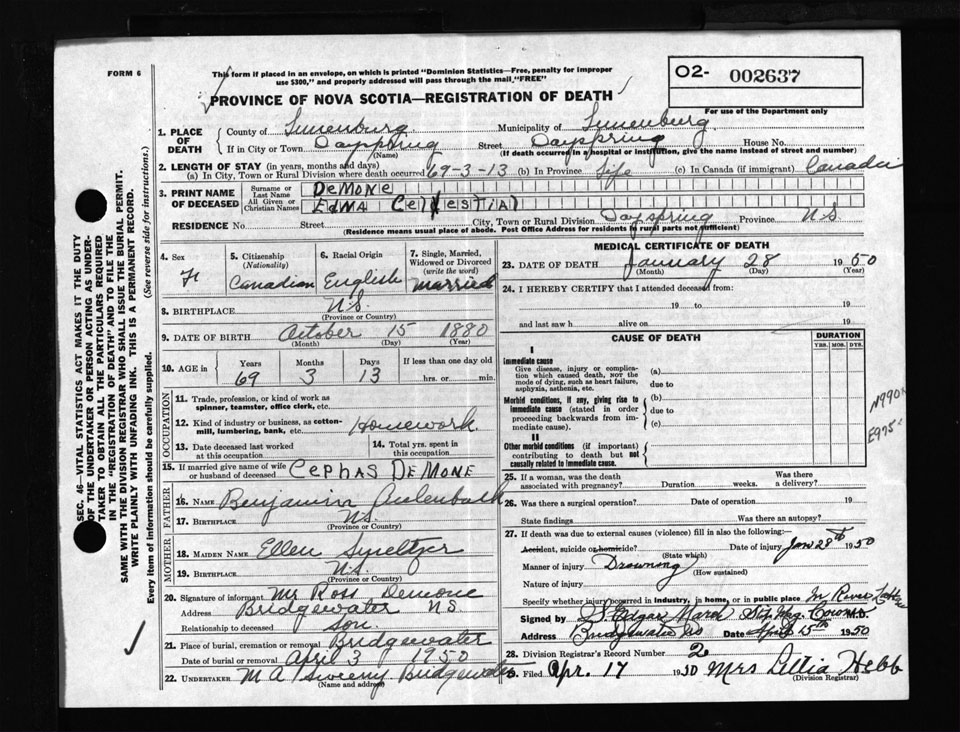 FORM 6
This form if placed in an envelope, on which is printed "Dominion Statistics—Free, penalty for improper
use $300," and properly addressed will pass through the mail, "FREE"
O2- 002637
For use of the Department only
PROVINCE OF NOVA SCOTIA—REGISTRATION OF DEATH
1. PLACE OF DEATH { County of Lunenburg Municipality of Lunenburg
If in City or Town Dayspring (Name) Street Dayspring House No.
(If death occurred in a hospital or institution, give the name instead of street and number)
2. LENGTH OF STAY (in years, months and days)
(a) In City, Town or Rural Division where death occurred 69-3-13 (b) In Province Life (c) In Canada (if immigrant) Canada
3. PRINT NAME OF DECEASED { Surname or Last Name DeMONE
All Given or Christian Names EDMA CeLestIAl
RESIDENCE No. Street City, Town or Rural Division Dayspring Province N.S.
(Residence means usual place of abode. Post Office Address for residents in rural parts not sufficient)
4. Sex F
5. Citizenship (Nationality) Canadian
6. Racial Origin English
7. Single, Married, Widowed or Divorced (write the word) Married
8. BIRTHPLACE N.S.
(Province or Country)
9. DATE OF BIRTH October 15 1880
(Month) (Day) (Year)
10. AGE in { Years 69 Months 3 Days 13 If less than one day old
hrs. or min.
OCCUPATION
11. Trade, profession, or kind of work as
spinner, teamster, office clerk, etc.
12. Kind of industry or business, as cotton-
mill, lumbering, bank, etc. Homework.
13. Date deceased last worked
at this occupation
14. Total yrs. spent in
this occupation
15. If married give name of wife
or husband of deceased CePHAS DeMONE
FATHER
16. NAME Benjamin
17. BIRTHPLACE N.S.
(Province or Country)
MOTHER
18. MAIDEN NAME Ellen Smeltzer
19. BIRTHPLACE N.S.
(Province or Country)
20. Signature of informant Mr Ross Demone
Address Bridgewater N.S.
Relationship to deceased son.
21. Place of burial, cremation or removal Bridgewater
Date of burial or removal April 3 1950
22. UNDERTAKER M A Sweeny Bridgewater
(Name and address)
MEDICAL CERTIFICATE OF DEATH
23. DATE OF DEATH January 28 1950
(Month) (Day) (Year)
24. I HEREBY CERTIFY that I attended deceased from:
19 to 19
and last saw h alive on 19
CAUSE OF DEATH
DURATION
YRS. MOS. DYS.
I
Immediate cause
Give disease, injury or complica-
tion which caused death, NOT the
mode of dying, such as heart failure,
asphyxia, asthenia, etc.
(a)
due to
Morbid conditions, if any, giving rise to
immediate cause (stated in order
proceeding backwards from im-
mediate cause)
(b)
due to
(c)
II
Other morbid conditions (if important)
contributing to death but not
causally related to immediate cause.
N990
E975
25. If a woman, was the death
associated with pregnancy? Duration weeks. Was there
a delivery?
26. Was there a surgical operation? Date of operation 19
State findings Was there an autopsy?
27. If death was due to external causes (violence) fill in also the following:
Accident, suicide or homicide? Date of injury Jan 28th 1950
(State which)
Manner of injury Drowning
(How sustained)
Nature of injury
Specify whether injury occurred in industry, in home, or in public place In River
Signed by Edgar March M.D.
Address Bridgewater NS Date April 15th 1950
28. Division Registrar's Record Number 2
29. Filed Apr. 17 1950 Mrs Lillia Hebb
(Division Registrar)
SEC. 46—VITAL STATISTICS ACT MAKES IT THE DUTY
OF THE UNDERTAKER OR PERSON ACTING AS UNDER-
TAKER TO OBTAIN ALL THE PARTICULARS REQUIRED
IN THE "REGISTRATION OF DEATH" AND TO FILE THE
SAME WITH THE DIVISION REGISTRAR WHO SHALL ISSUE THE BURIAL PERMIT.
WRITE PLAINLY WITH UNFADING INK. THIS IS A PERMANENT RECORD.
Every item of information should be carefully supplied. (See reverse side for instructions.)